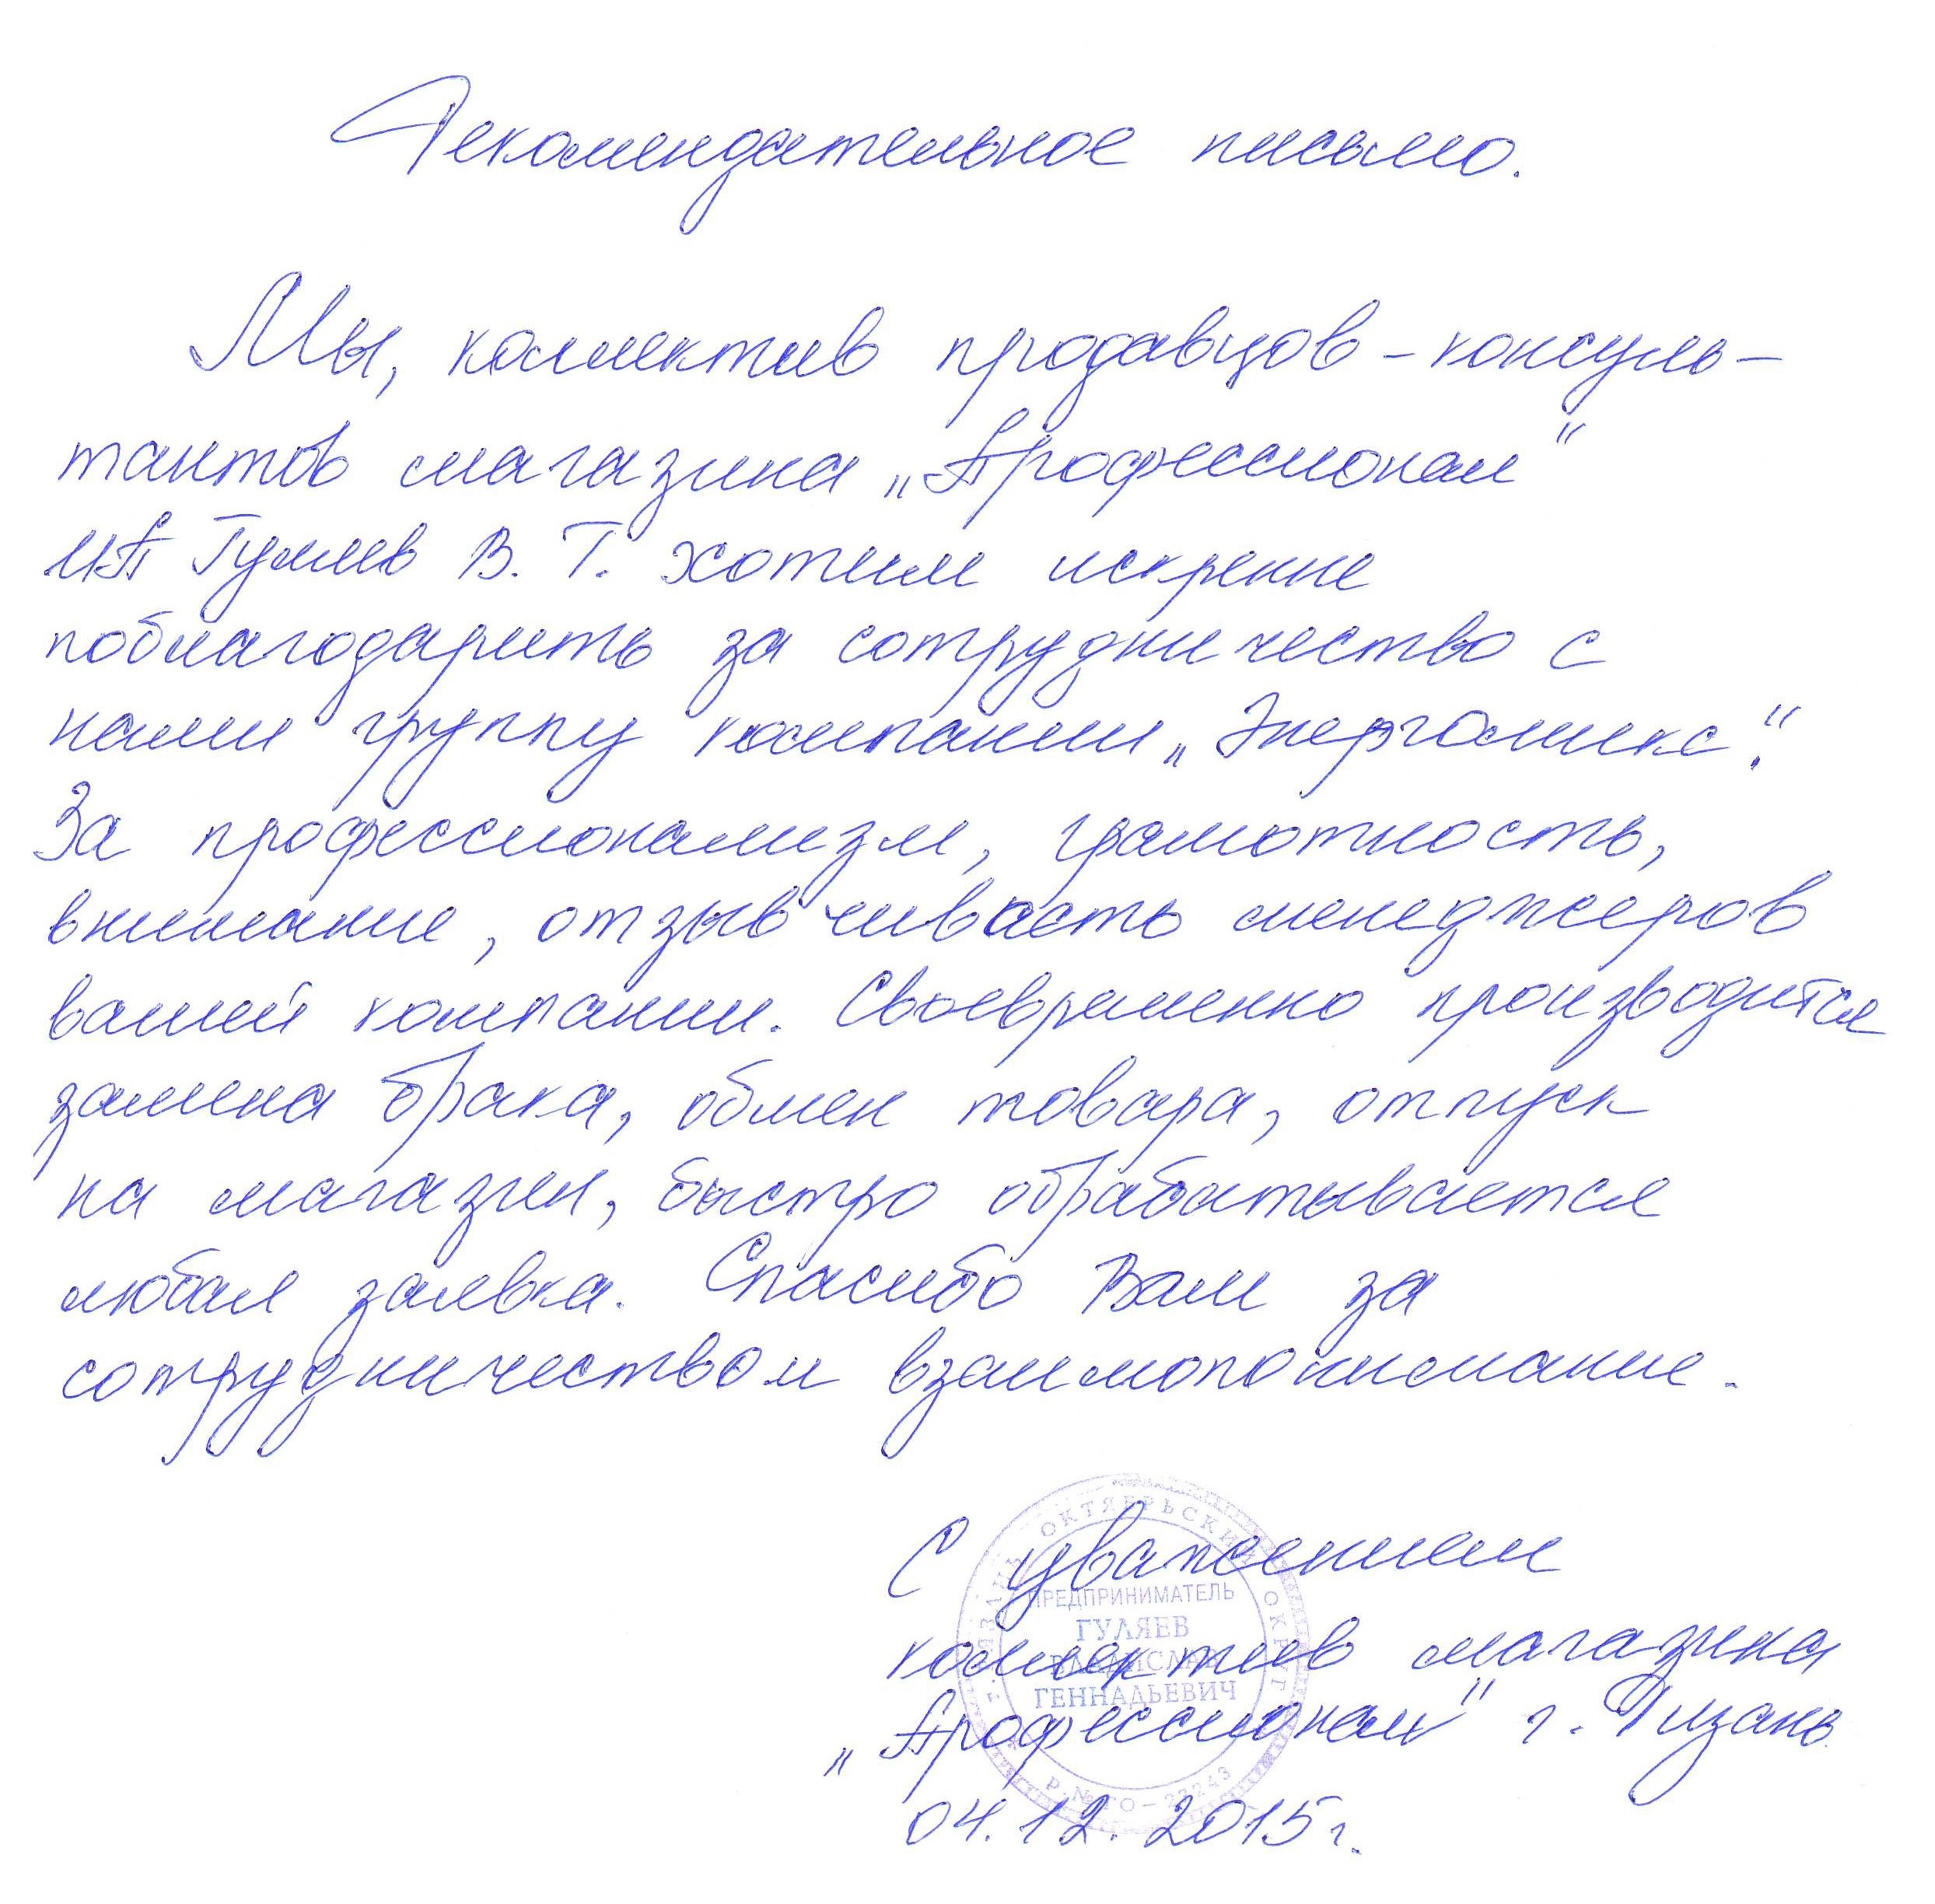 Рекомендательное письмо.
Мы, коллектив продавцов-консуль-
тантов магазина „Профессионал“
ИП Гуляев В. Г. хотим искренне
поблагодарить за сотрудничество с
нами группу компании „Энергомикс“.
За профессионализм, грамотность,
внимание, отзывчивость менеджеров
вашей компании. Своевременно производится
замена брака, обмен товара, отпуск
на магазин, быстро обрабатывается
любая заявка. Спасибо Вам за
сотрудничество и взаимопонимание.
С уважением
коллектив магазина
„Профессионал“ г. Рязань
04.12.2015г.
г. РЯЗАНЬ ОКТЯБРЬСКИЙ ОКРУГ
ПРЕДПРИНИМАТЕЛЬ
ГУЛЯЕВ
ВЛАДИСЛАВ
ГЕННАДЬЕВИЧ